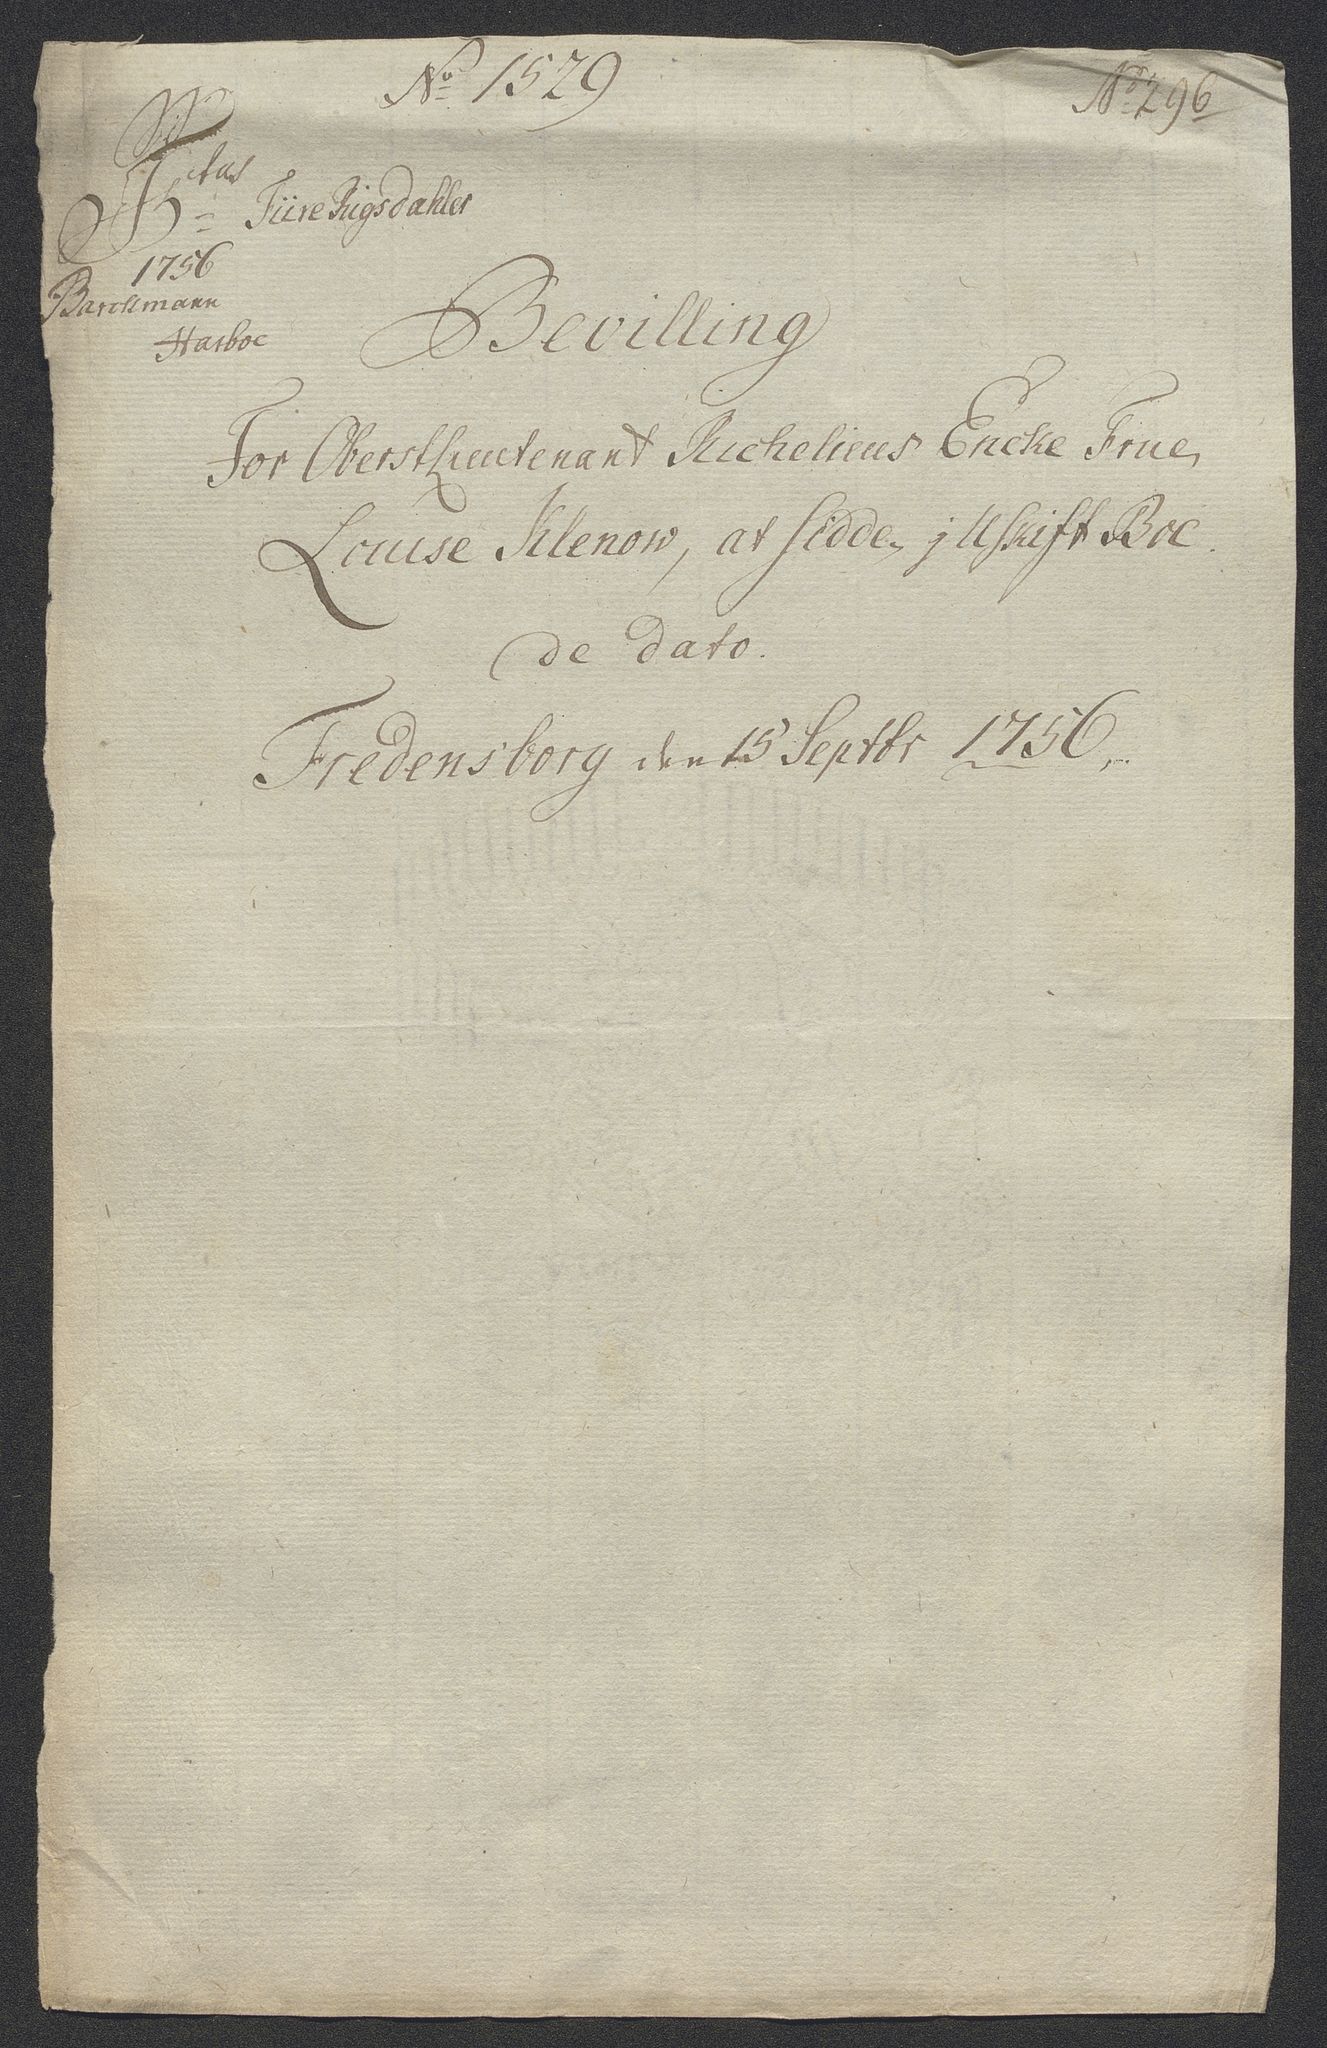 No 1529
No 296
Fiire Rigsdahler
1756
Barchmann
Harboe
Bevilling
For Oberstlieutenant Richelieus Encke Frue,
Louise Klenow, at sidde, j Uskift Boe
de dato.
Fredensborg den 15 Septbr 1756.